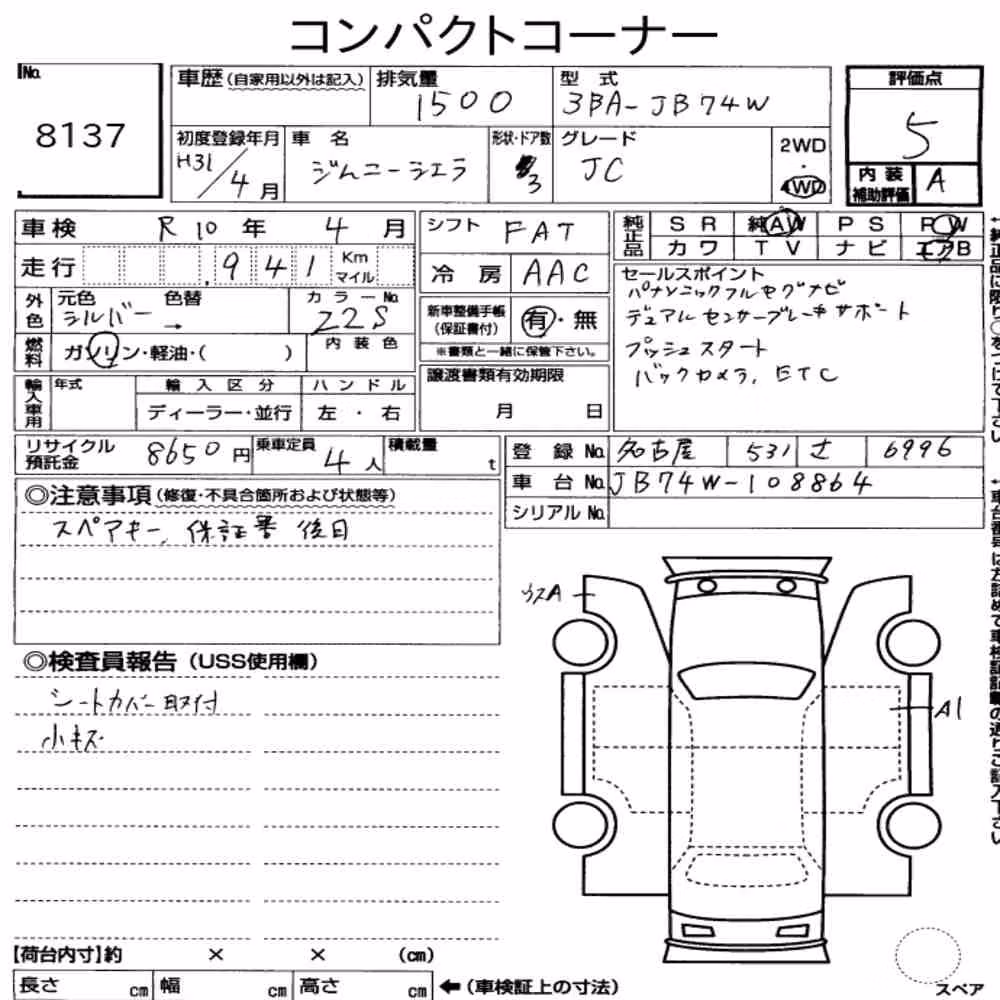 コンパクトコーナー
No. 8137
車歴(自家用以外は記入) 排気量 1500 型式 3BA-JB74W
評価点 5
初度登録年月 H31/4月 車名 ジムニーシエラ 形状・ドア数 3 グレード JC 2WD・4WD
内装補助評価 A
車検 R10年 4月 シフト FAT 純正品 SR 純AW PS PW
カワ TV ナビ エアB
走行 941 Km マイル 冷房 AAC
セールスポイント
パナソニックフルセグナビ
デュアルセンサーブレーキサポート
プッシュスタート
バックカメラ, ETC
外色 元色 シルバー → 色替 カラーNo. Z2S
新車整備手帳(保証書付) 有・無
※書類と一緒に保管下さい。
燃料 ガソリン・軽油・( ) 内装色
輸入車用 年式 輸入区分 ハンドル
ディーラー・並行 左・右
譲渡書類有効期限
月 日
リサイクル預託金 8650円 乗車定員 4人 積載量 t
登録No. 名古屋 531 さ 6996
車台No. JB74W-108864
シリアルNo.
◎注意事項(修復・不具合箇所および状態等)
スペアキー, 保証書 後日
ウスA
A1
◎検査員報告(USS使用欄)
シートカバー取付
小キズ
【荷台内寸】約 × × (cm)
長さ cm 幅 cm 高さ cm ←(車検証上の寸法)
スペア
←純正品に限り○をつけて下さい
←車台番号は左詰めで車検証記載の通りご記入下さい